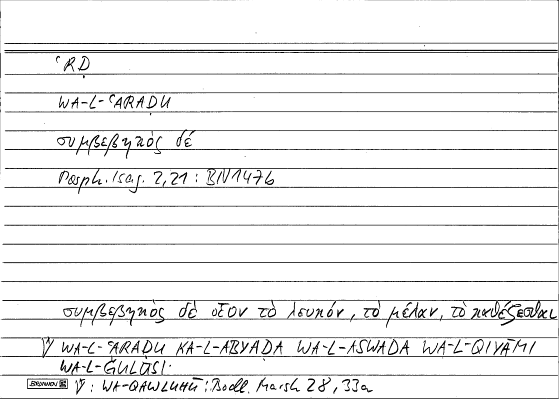 ʿRḌ
WA-L-ʿARAḌU
συμβεβηκὸς δέ
Porph. Isag. 2,21 : BN1476
συμβεβηκὸς δὲ οἷον τὸ λευκόν, τὸ μέλαν, τὸ καθέζεσθαι
WA-L-ʿARAḌU KA-L-ABYAḌA WA-L-ASWADA WA-L-QIYĀMI
WA-L-ǦULŪSI
BRUNNEN : WA-QAWLUHŪ : Bodl. Marsh 28, 33a